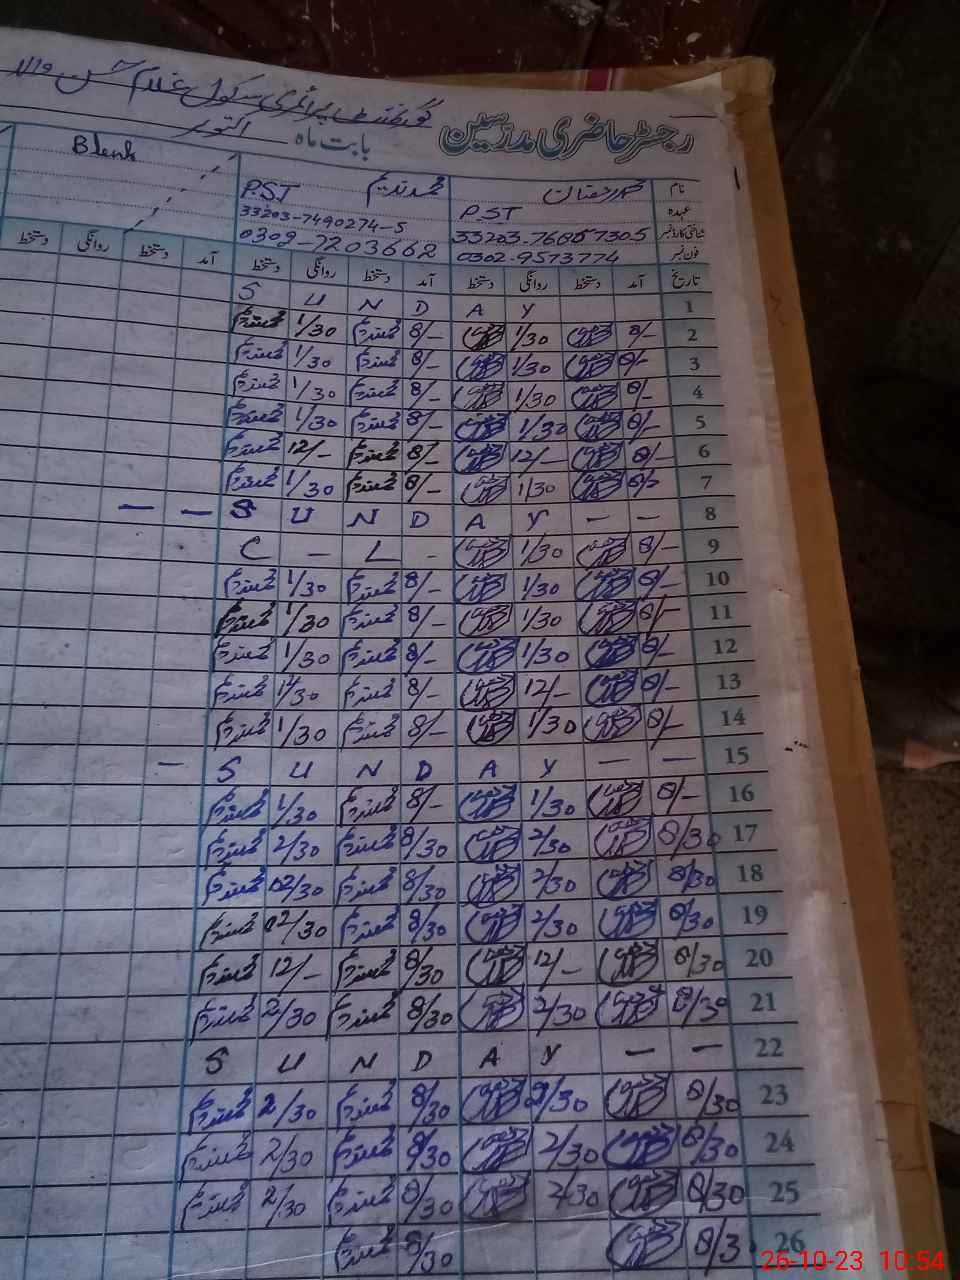 گورنمنٹ پرائمری سکول غلام
رجسٹر حاضری مدرسین بابت ماہ اکتوبر
نام محمد ندیم Blenk
عہدہ P.ST P.ST
شناختی کارڈ نمبر 33203-7490274-5
فون نمبر 0302-9573774 0309-7203662
تاریخ آمد دستخط روانگی دستخط آمد دستخط روانگی دستخط آمد دستخط روانگی دستخط
1 S U N D A Y
2 8/- 1/30 8/- محمد ندیم 1/30 محمد ندیم
3 8/- 1/30 8/- محمد ندیم 1/30 محمد ندیم
4 8/- 1/30 8/- محمد ندیم 1/30 محمد ندیم
5 8/- 1/30 8/- محمد ندیم 1/30 محمد ندیم
6 8/- 12/- 8/- محمد ندیم 12/- محمد ندیم
7 8/- 1/30 8/- محمد ندیم 1/30 محمد ندیم
8 — — S U N D A Y — —
9 8/- 1/30 C - L -
10 8/- 1/30 8/- محمد ندیم 1/30 محمد ندیم
11 8/- 1/30 8/- محمد ندیم 1/30 محمد ندیم
12 8/- 1/30 8/- محمد ندیم 1/30 محمد ندیم
13 8/- 12/- 8/- محمد ندیم محمد ندیم
14 8/- 1/30 8/- محمد ندیم 1/30 محمد ندیم
15 — S U N D A Y — —
16 8/- 1/30 8/- محمد ندیم 1/30 محمد ندیم
17 8/30 2/30 8/30 محمد ندیم 2/30 محمد ندیم
18 8/30 2/30 8/30 محمد ندیم 02/30 محمد ندیم
19 8/30 2/30 8/30 محمد ندیم 02/30 محمد ندیم
20 8/30 12/- 8/30 محمد ندیم 12/- محمد ندیم
21 8/30 2/30 8/30 محمد ندیم 2/30 محمد ندیم
22 S U N D A Y — —
23 8/30 2/30 8/30 محمد ندیم 2/30 محمد ندیم
24 8/30 2/30 8/30 محمد ندیم 2/30 محمد ندیم
25 8/30 2/30 8/30 محمد ندیم 2/30 محمد ندیم
26 8/3 8/30 محمد ندیم
26-10-23 10:54